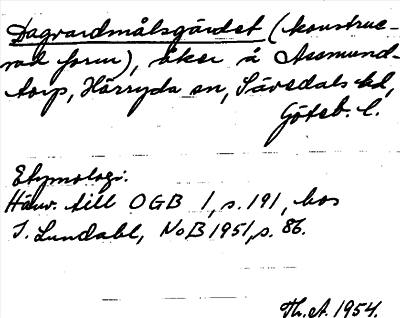 Dagvardmålsgärdet (konstrue-
rad form), åker å Assmund-
torp, Härryda sn, Sävedals hd,
Göteb. l.
Etymologi.
Hänv. till OGB 1, s. 191, hos
I. Lundahl, NoB 1951, s. 86.
Th. A. 1954.